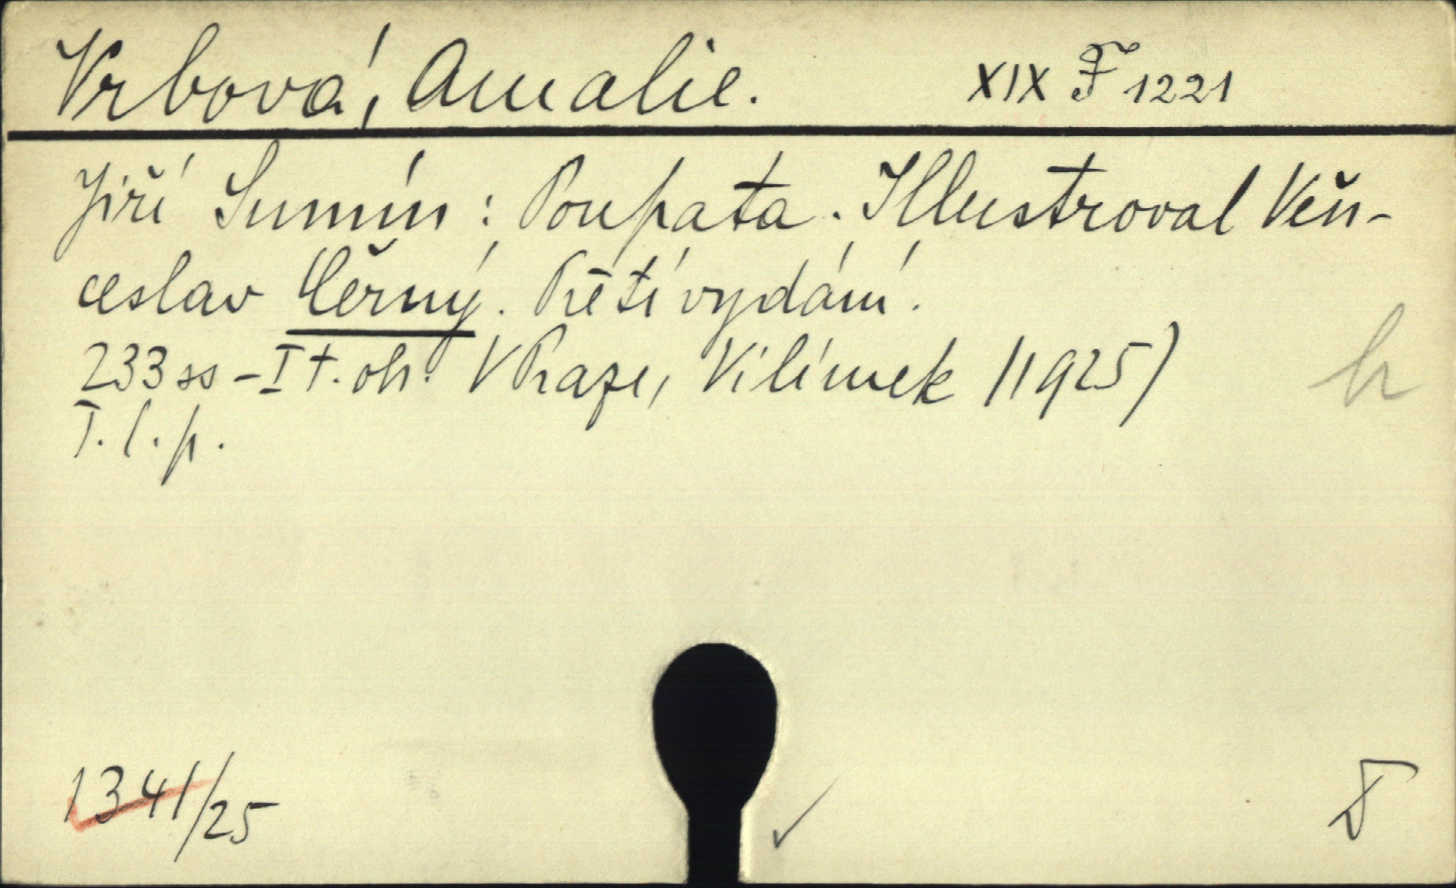 Vrbová, Amalie. XIX F 1221
Jiří Sumín: Poupata. Illustroval Věn-
ceslav Černý. Třetí vydání.
233 ss - I t. ob. V Praze, Vilímek (1925)
T. l. p.
h
1341/25